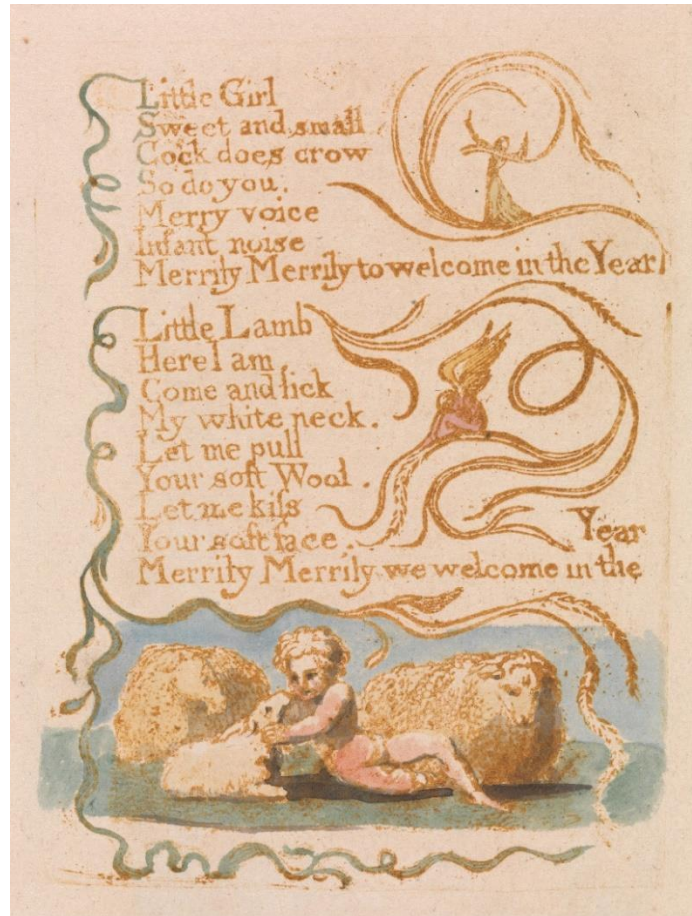 Little Girl
Sweet and small
Cock does crow
So do you.
Merry voice
Infant noise
Merrily Merrily to welcome in the Year
Little Lamb
Here I am
Come and lick
My white neck.
Let me pull
Your soft Wool.
Let me kiſs
Your soft face.
Merrily Merrily we welcome in the
Year